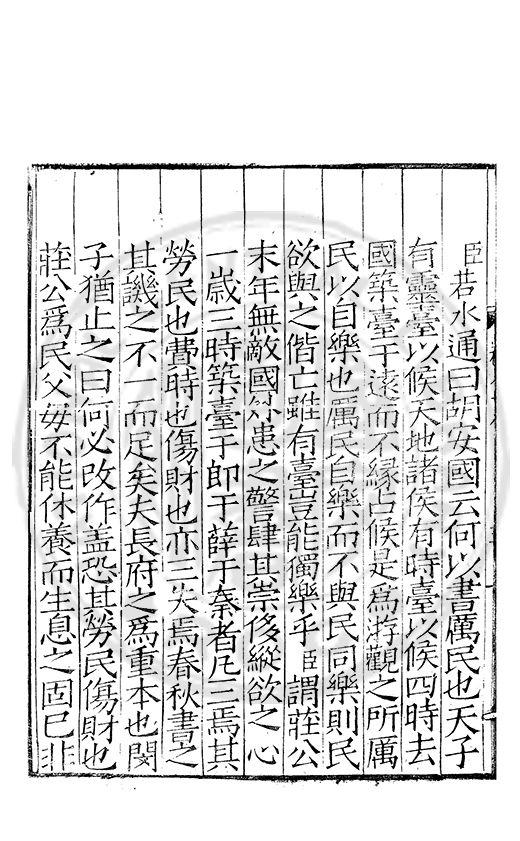 臣若水通曰胡安國云何以書厲民也天子
有靈臺以候天地諸侯有時臺以候四時去
國築臺于遠而不緣占候是爲游觀之所厲
民以自樂也厲民自樂而不與民同樂則民
欲與之偕亡雖有臺豈能獨樂乎臣謂莊公
末年無敵國外患之警肆其崇侈縱欲之心
一歲三時築臺于郎于薛于秦者凡三焉其
勞民也費時也傷財也亦三失焉春秋書之
其譏之不一而足矣夫長府之爲重本也閔
子猶止之曰何必改作盖恐其勞民傷財也
莊公爲民父毋不能休養而生息之固已非